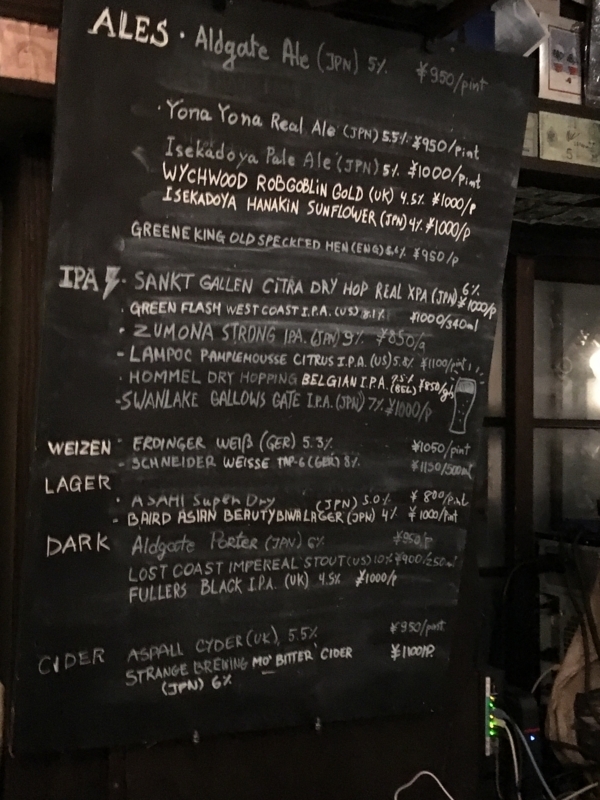 ALES · Aldgate Ale (JPN) 5% ¥950/pint
· Yona Yona Real Ale (JPN) 5.5% ¥950/pint
Isekadoya Pale Ale (JPN) 5% ¥1000/pint
WYCHWOOD ROBGOBLIN GOLD (UK) 4.5% ¥1000/p
ISEKADOYA HANAKIN SUNFLOWER (JPN) 4% ¥1000/p
GREENE KING OLD SPECKFED HEN (ENG) ¥950/p
IPA · SANKT GALLEN CITRA DRY HOP REAL XPA (JPN) 6% ¥1000/p
· GREEN FLASH WEST COAST I.P.A. (US) 8.1% ¥1000/340ml
· ZUMONA STRONG IPA. (JPN) 9% ¥850/g
- LAMPOC PAMPLEMOUSSE CITRUS I.P.A. (US) 5.8% ¥1100/pint
· HOMMEL DRY HOPPING BELGIAN I.P.A. 7.5% (BEL) ¥850/gls
- SWANLAKE GALLOWS GATE I.P.A. (JPN) 7% ¥1000/p
WEIZEN · ERDINGER WEIß (GER) 5.3% ¥1050/pint
- SCHNEIDER WEISSE TAP-6 (GER) 8% ¥1150/500ml
LAGER
· ASAHI Super Dry (JPN) 5.0% ¥800/pint
- BAIRD ASIAN BEAUTY BIWA LAGER (JPN) 4% ¥1000/pint
DARK Aldgate Porter (JPN) 6% ¥950/p
LOST COAST IMPEREAL STOUT (US) 10% ¥900/250ml
FULLERS BLACK I.P.A. (UK) 4.5% ¥1000/p
CIDER ASPALL CYDER (UK), 5.5% ¥950/pint
STRANGE BREWING MO' BITTER CIDER ¥1100/P.
(JPN) 6%